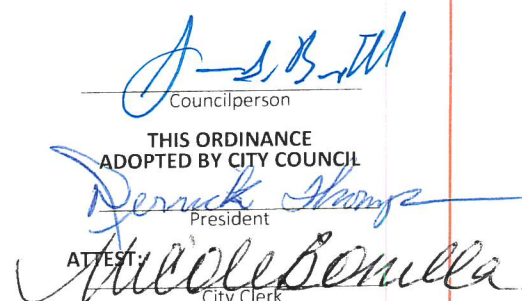 Councilperson
THIS ORDINANCE
ADOPTED BY CITY COUNCIL
Derrick Thomps
President
ATTEST:
Nicole Bonilla
City Clerk